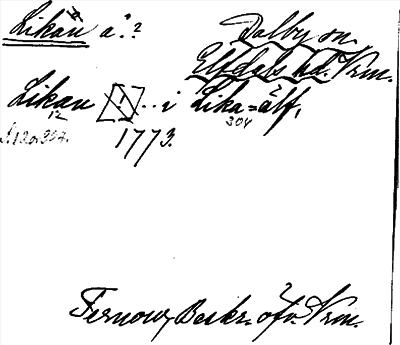 Likan å.? Dalby sn
Elfdals hd. Vrm.
Likan [?]... i Lika-älf,
12 304
S. 12 o. 307. 1773.
Fernow, Beskr. öfv. Vrm.